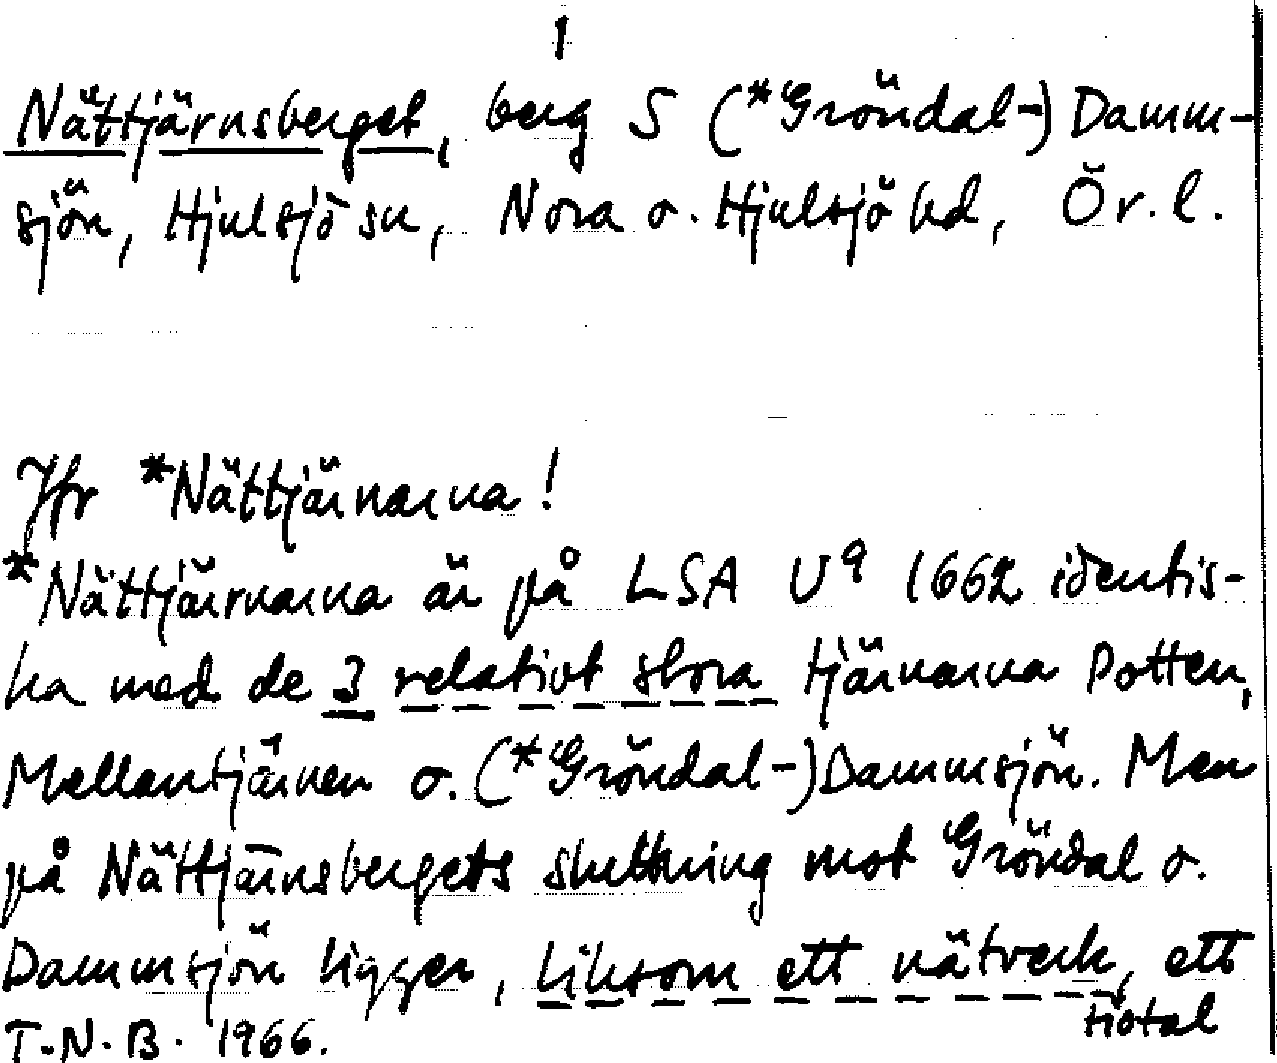 1
Nättjärnsberget, berg S (*Gröndal-) Damm-
sjön, Hjulsjö sn, Nora o. Hjulsjö hd, Ör. l.
Jfr *Nättjärnarna!
*Nättjärnarna är på LSA U9 1662 identis-
ka med de 3 relativt stora tjärnarna Potten,
Mellantjärnen o. (*Gröndal-) Dammsjön. Men
på Nättjärnsbergets sluttning mot Gröndal o.
Dammsjön ligger, liksom ett nätverk, ett
tiotal
T.N.B. 1966.